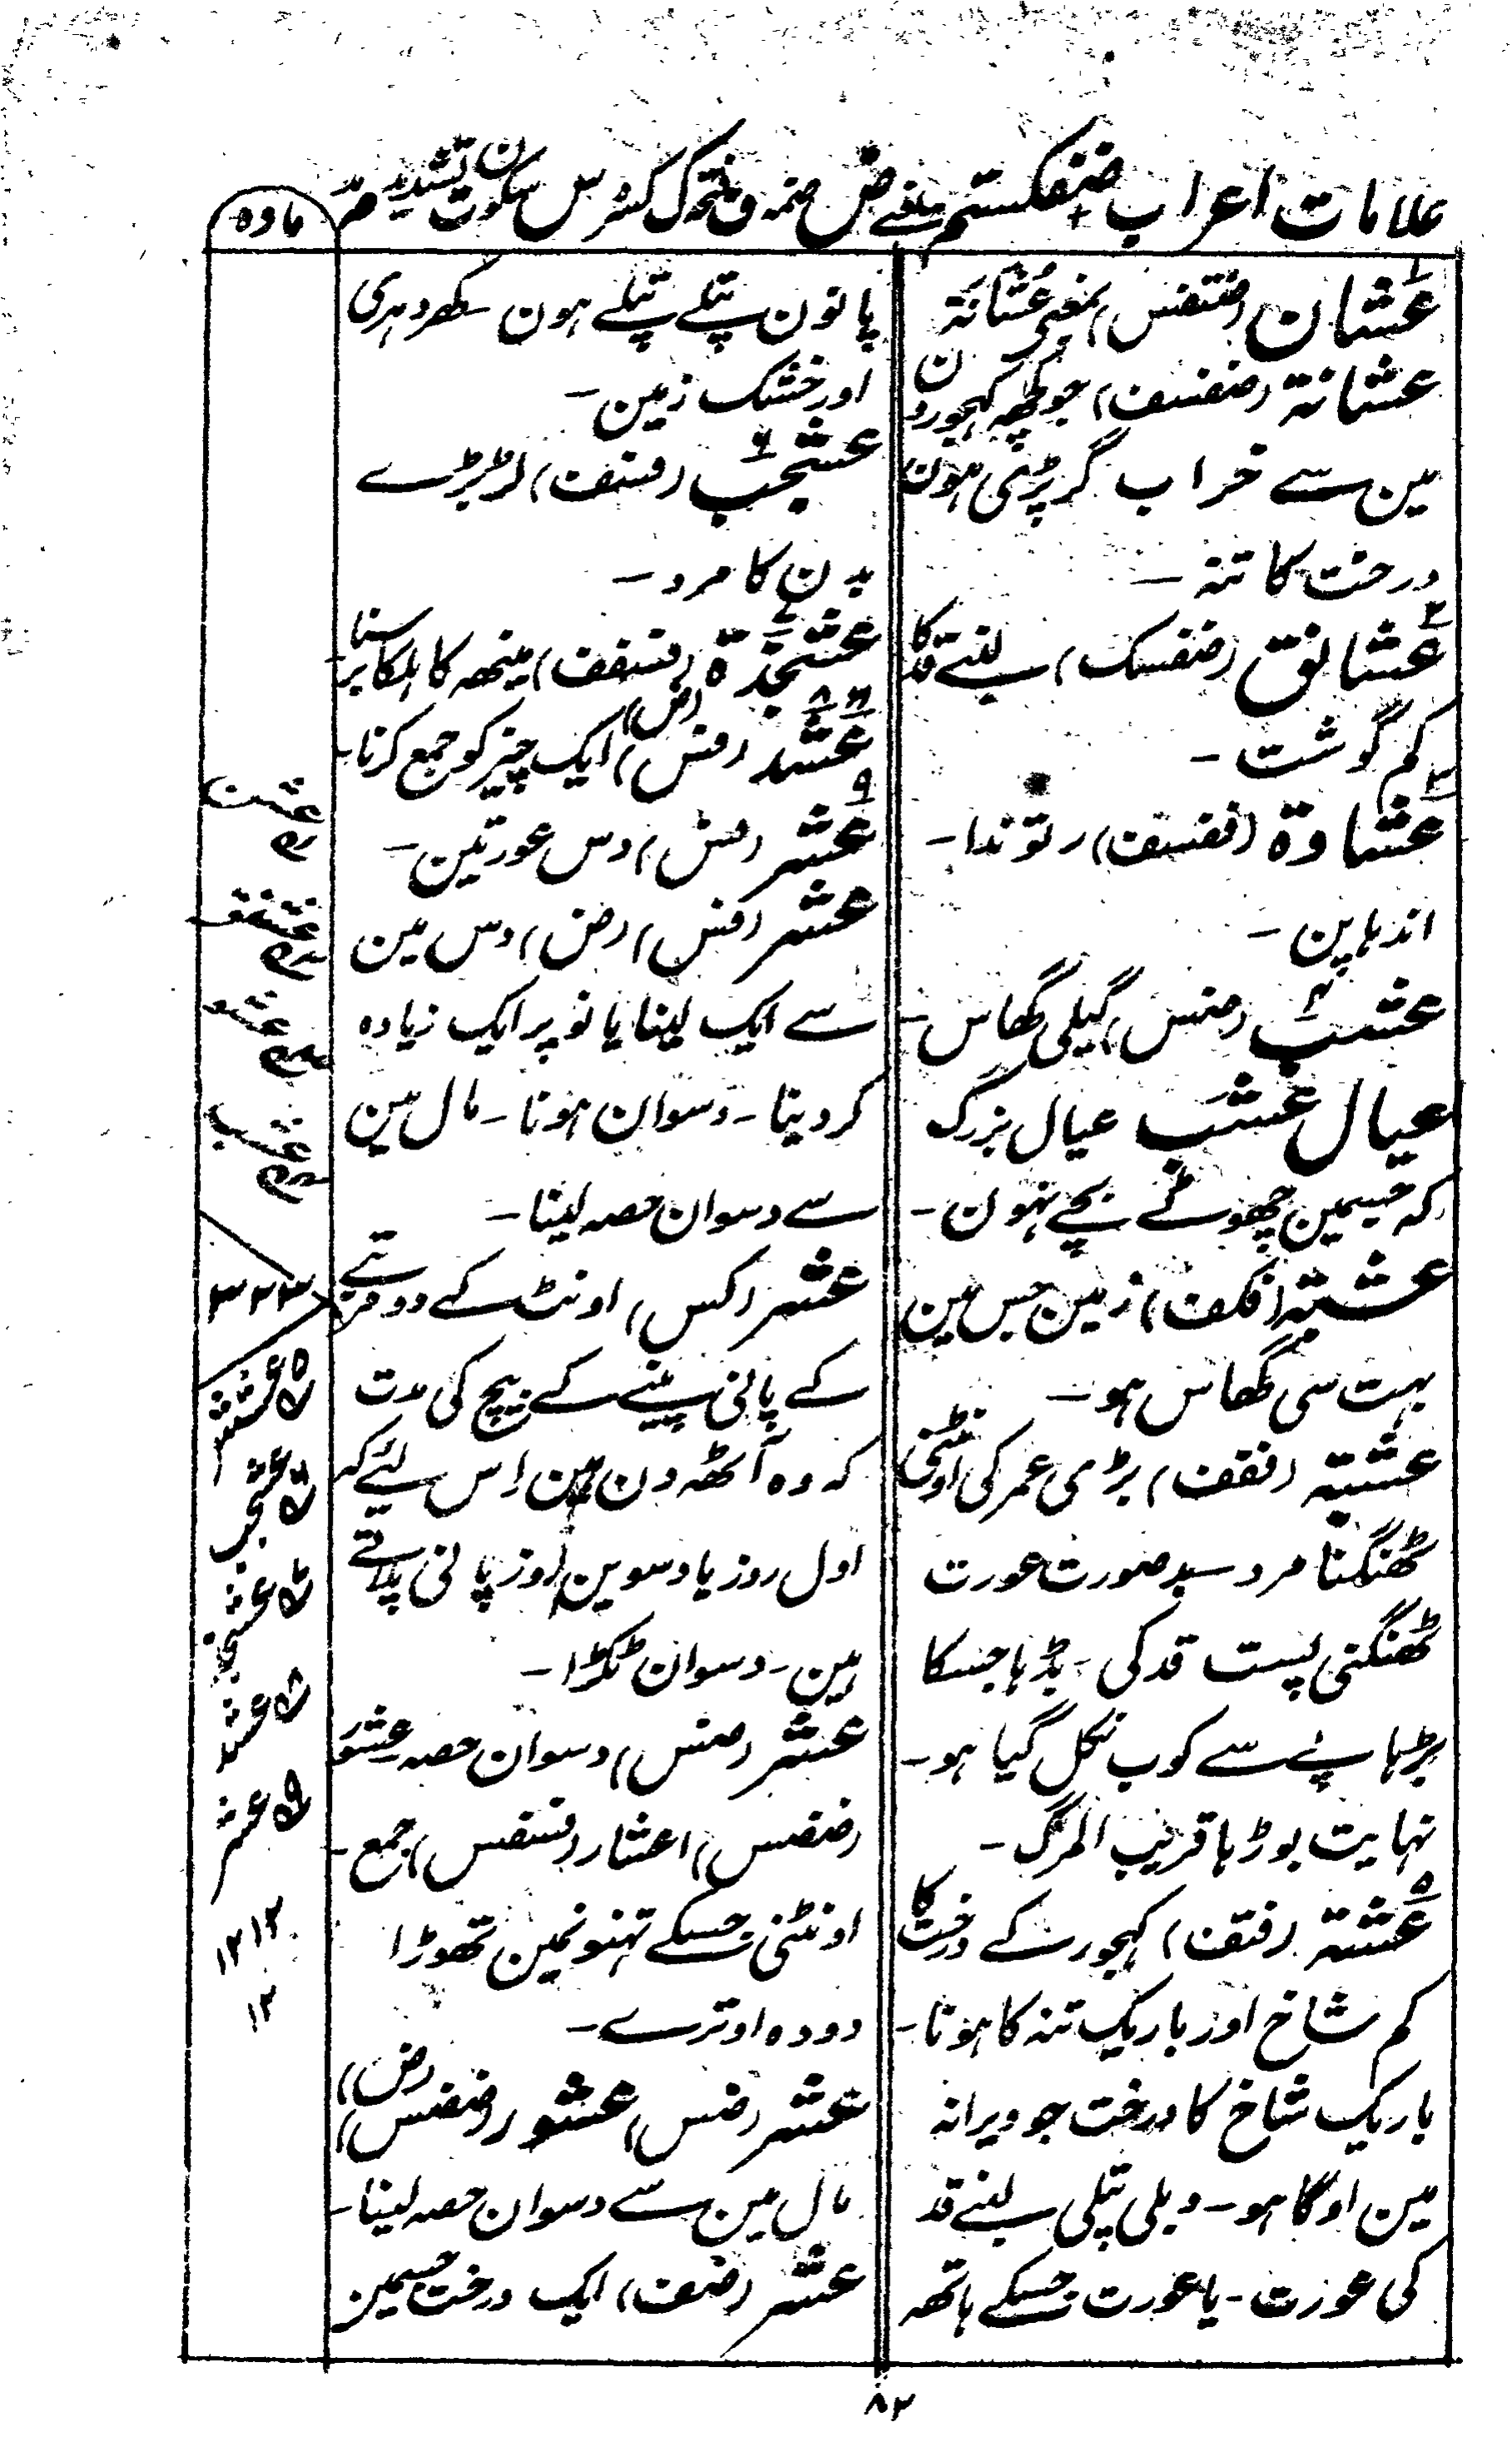 علامات اعراب ضفکستم یعنے ض ضمہ ف فتحہ ک کسرہ س سکون ت تشدید م مد
مادہ
عشان (ضتفس) بمعنی عشانۃ
عشانۃ (ضفسف) جو کچھہ کہجورون
مین سے خراب گر پڑی ہون
درخت کا تنہ –
عشانق (ضفسک) لنبے قد کا
کم گوشت –
عشاوۃ (ففسف) رتوندا –
اندہاپن –
عشب (ضس) گیلی گھاس –
عیال عشب عیال بزرگ
کہ جسمین چھوٹے بچے نہون –
عشبۃ (فکف) زمین جس مین
بہت سی گھاس ہو –
عشبۃ (ففف) بڑی عمر کی اونٹنی
ٹھنگنا مرد بد صورت عورت
ٹھنگنی پست قد کی – بڈہا جسکا
بڑہاپے سے کوب نکل گیا ہو –
نہایت بوڑہا قریب المرگ –
عشۃ (فتف) کہجور کے درخت کا
کم شاخ اور باریک تنہ کا ہونا –
باریک شاخ کا درخت جو ویرانہ
مین اوگا ہو – دبلی پتلی لنبے قد
کی عورت – یا عورت جسکے ہاتھہ
پانون پتلے پتلے ہون – کھردہری
اور خشک زمین –
عشجب (فسف) لڑبڑے
بدن کا مرد –
عشجذۃ (فسفف) مینھہ کا ہلکا برسنا
عشد (فس) (ض) ایک چیز کو جمع کرنا –
عشر (فس) دس عورتین –
عشر (فس) (ض) دس مین
سے ایک لینا یا نو پر ایک زیادہ
کر دینا – دسوان ہونا – مال مین
سے دسوان حصہ لینا –
عشر (کس) اونٹ کے دو مرتبے
کے پانی پینے کے بیچ کی مدت
کہ وہ آٹھہ دن ہین اس لئے کہ
اول روز یا دسوین روز پانی پلاتے
ہین – دسوان ٹکڑا –
عشر (ضس) دسوان حصہ عشور
(ضفس) اعشار (فسفس) جمع –
اونٹنی جسکے تہنو نمین تھوڑا
دودہ اوترے –
عشر (ضس) عشور (ضفس) (ض)
مال مین سے دسوان حصہ لینا –
عشر (ضف) ایک درخت جسمین
عشن
عشنق
عشو
عشب
۳۲۳
عشش
عشجب
عشجذ
عشد
عشر
۱۲۱۳
۱۳
۸۲